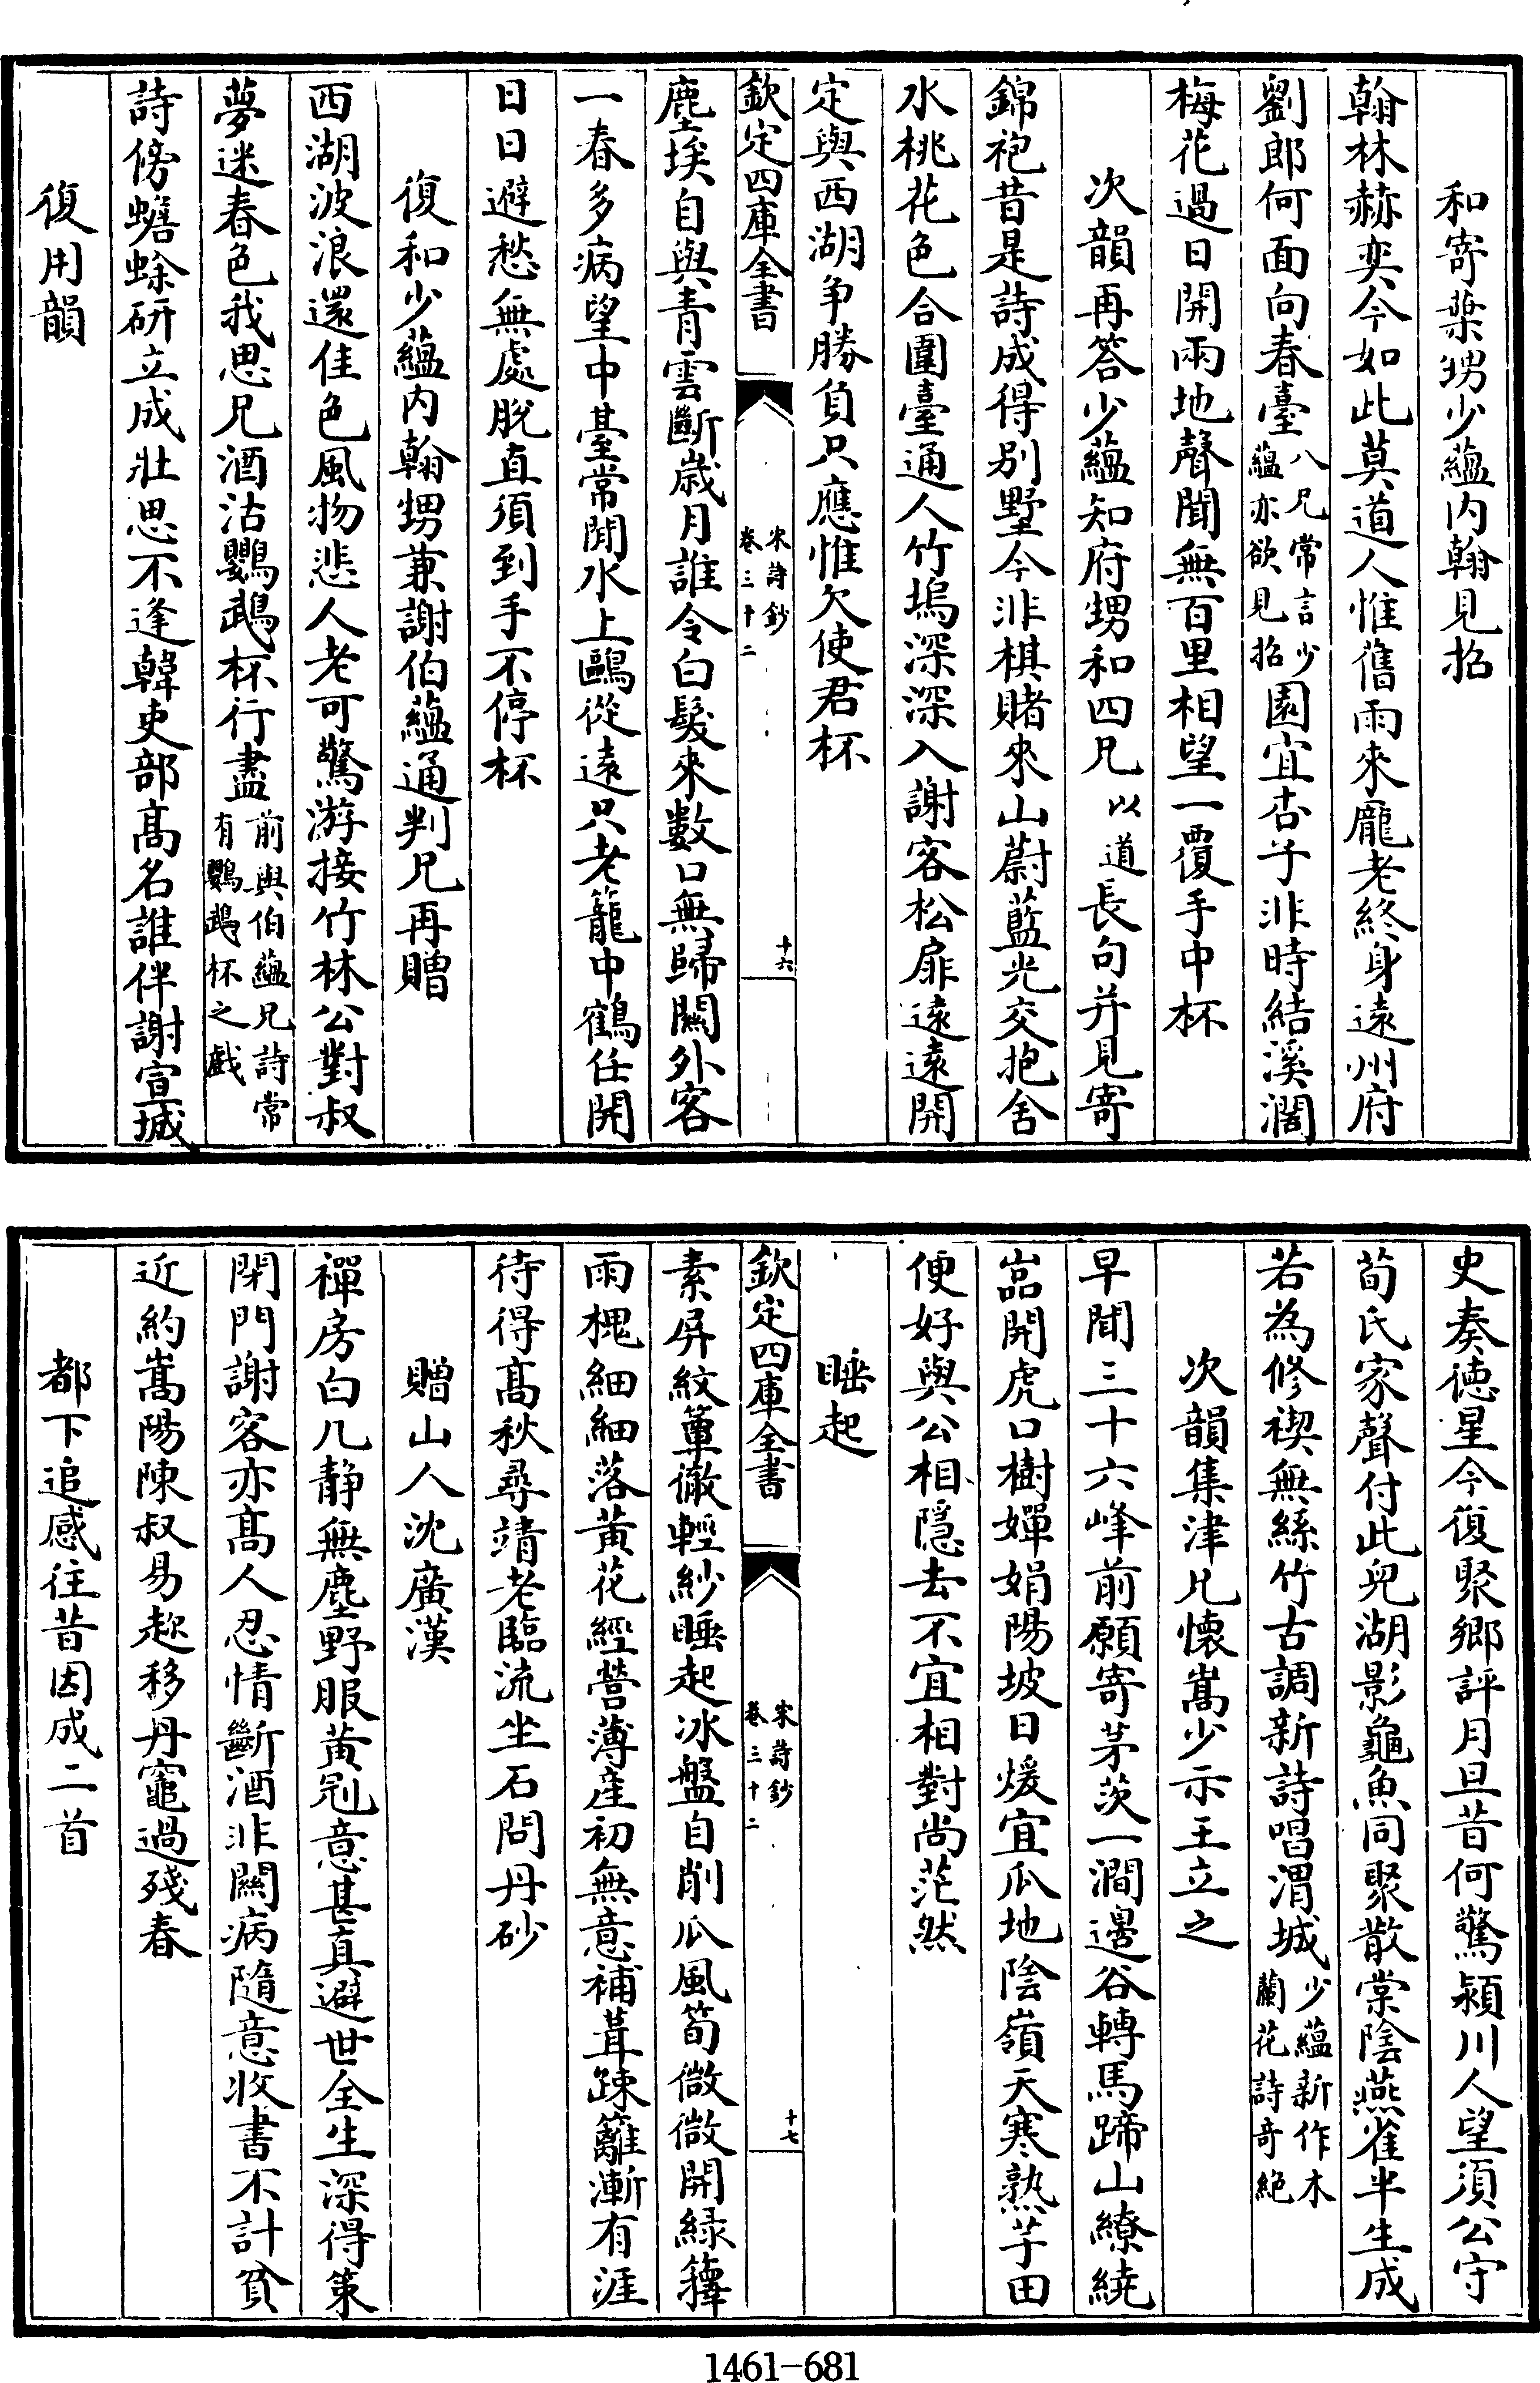 和寄葉甥少藴内翰見招
翰林赫奕今如此莫道人惟舊雨來龎老終身遠州府
劉郎何面向春臺八兄常言少藴亦欲見招園宜杏子非時結溪濶
梅花過日開兩地聲聞無百里相望一覆手中杯
次韻再答少藴知府甥和四兄以道長句并見寄
錦袍昔是詩成得别墅今非棋賭來山蔚藍光交抱舍
水桃花色合圍臺通人竹塢深深入謝客松扉遠遠開
定與西湖争勝負只應惟欠使君杯
欽定四庫全書
宋詩鈔
卷三十二
十六
塵埃自與青雲斷歲月誰令白髮來數口無歸關外客
一春多病望中臺常聞水上鷗從遠只老籠中鶴任開
日日避愁無處脫直須到手不停杯
復和少藴内翰甥兼謝伯藴通判兄再贈
西湖波浪還佳色風物悲人老可驚游接竹林公對叔
夢迷春色我思兄酒沽鸚鵡杯行盡前與伯藴兄詩常有鸚鵡杯之戯
詩傍蟾蜍研立成壯思不逢韓吏部髙名誰伴謝宣城
復用韻
史奏徳星今復聚鄉評月旦昔何驚潁川人望須公守
荀氏家聲付此兒湖影龜魚同聚散棠陰燕雀半生成
若為修禊無絲竹古調新詩唱渭城少藴新作木蘭花詩奇絶
次韻集津兄懷嵩少示王立之
早聞三十六峰前願寄茅茨一澗邊谷轉馬蹄山繚繞
嵓開虎口樹嬋娟陽坡日煖宜瓜地陰嶺天寒熟芋田
便好與公相隠去不宜相對尚茫然
睡起
欽定四庫全書
宋詩鈔
卷三十二
十七
素屏紋簟徹輕紗睡起冰盤自削瓜風筍微微開緑籜
雨槐細細落黄花經營薄産初無意補葺踈籬漸有涯
待得髙秋尋靖老臨流坐石問丹砂
贈山人沈廣漢
禪房白几静無塵野服黄冠意甚真避世全生深得策
閉門謝客亦髙人忍情斷酒非關病隨意收書不計貧
近約嵩陽陳叔易趂移丹竈過殘春
都下追感往昔因成二首
1461-681